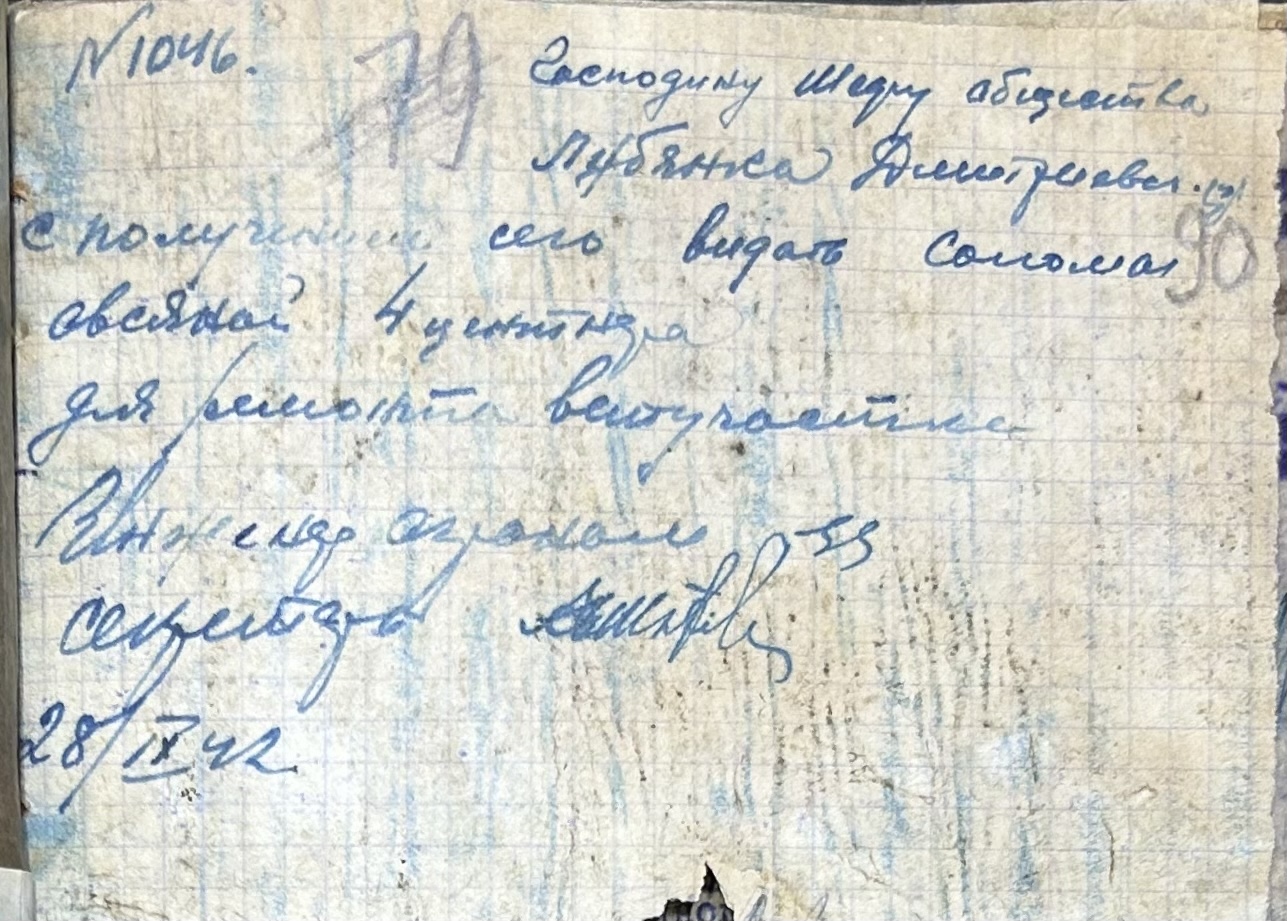 N 1046.
79
Господину Шефу общества
Лубянка Дмитриевск.
90
с получением сего видать соломы
овсяной 4 центнера
для ремонта ветучастка
Инженер агроном
секретарь
28/IX 42